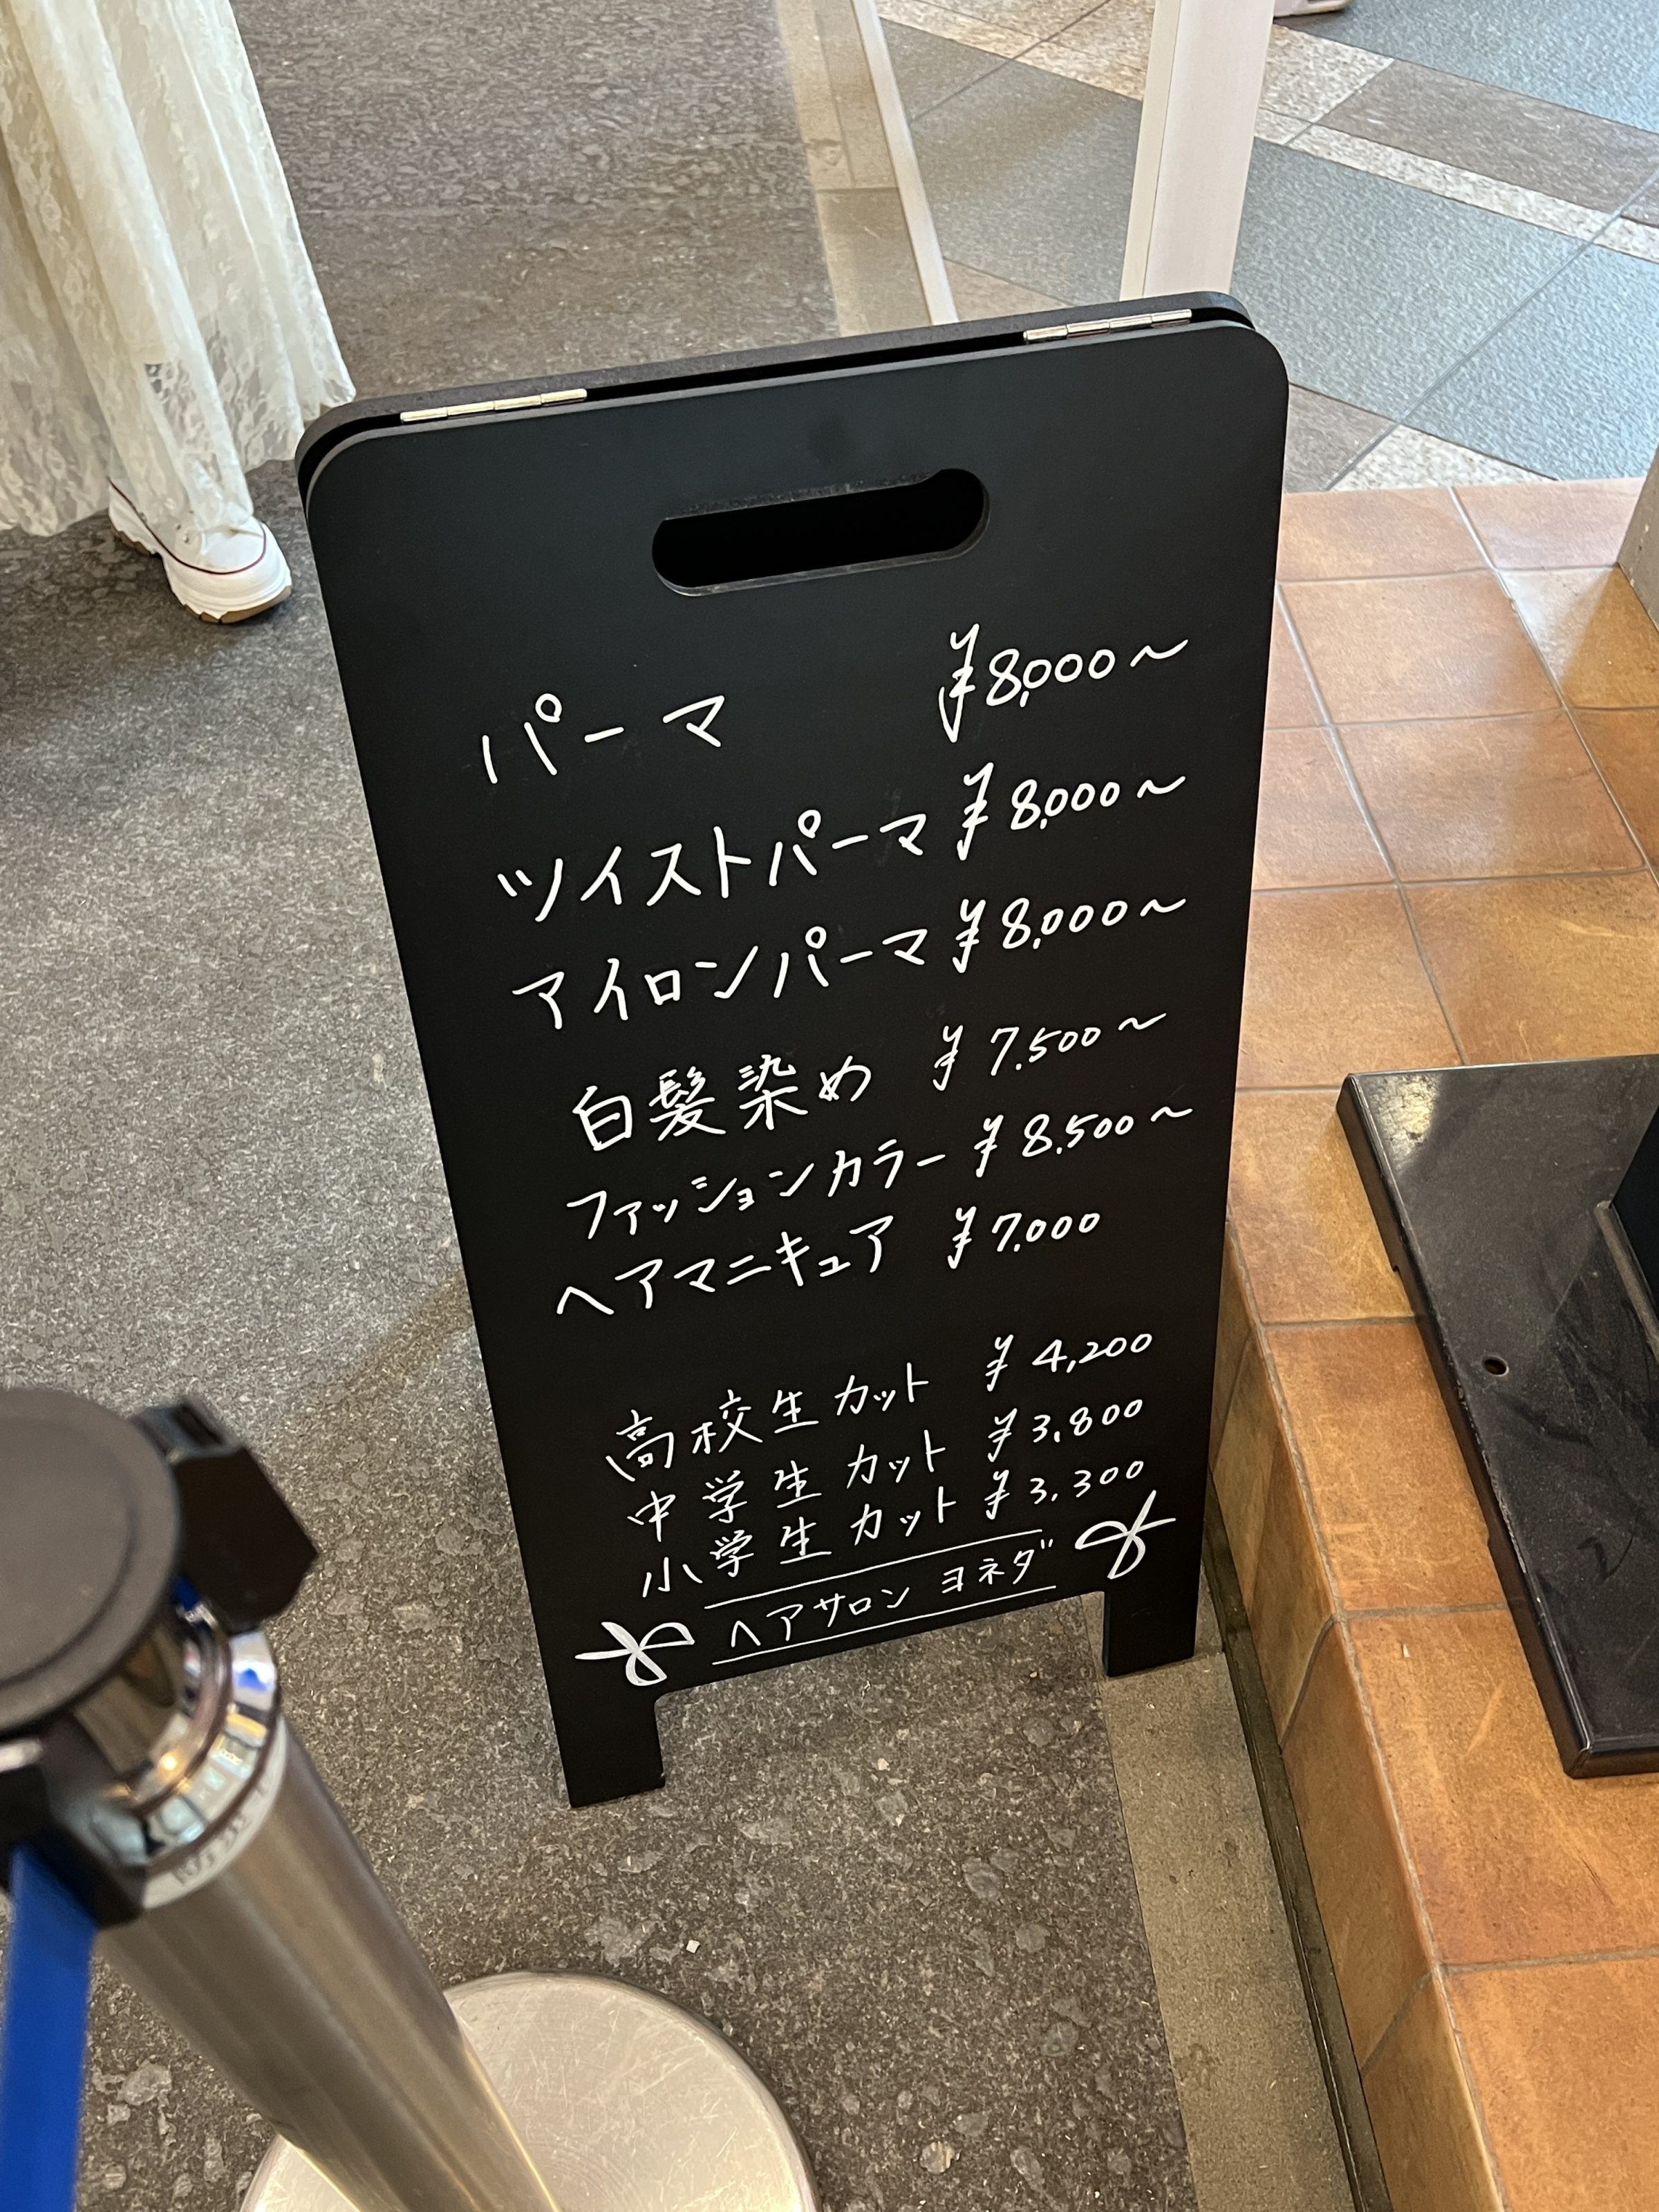 パーマ ¥8,000～
ツイストパーマ ¥8,000～
アイロンパーマ ¥8,000～
白髪染め ¥7,500～
ファッションカラー ¥8,500～
ヘアマニキュア ¥7,000
高校生カット ¥4,200
中学生カット ¥3,800
小学生カット ¥3,300
ヘアサロン ヨネダ